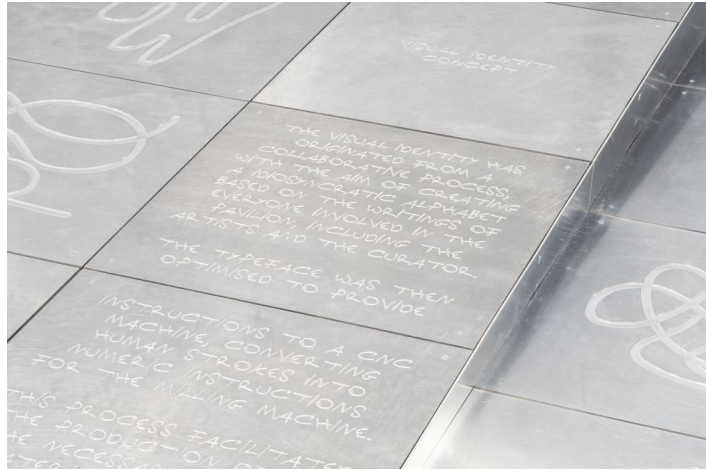 VISUAL IDENTITY
CONCEPT
THE VISUAL IDENTITY WAS
ORIGINATED FROM A
COLLABORATIVE PROCESS,
WITH THE AIM OF CREATING
A IDIOSYNCRATIC ALPHABET
BASED ON THE WRITINGS OF
EVERYONE INVOLVED IN THE
PAVILION, INCLUDING THE
ARTISTS AND THE CURATOR.
THE TYPEFACE WAS THEN
OPTIMISED TO PROVIDE
INSTRUCTIONS TO A CNC
MACHINE, CONVERTING
HUMAN STROKES INTO
NUMERIC INSTRUCTIONS
FOR THE MILLING MACHINE.
THIS PROCESS FACILITATE
THE PRODUCTION OF
THE NECESSAR